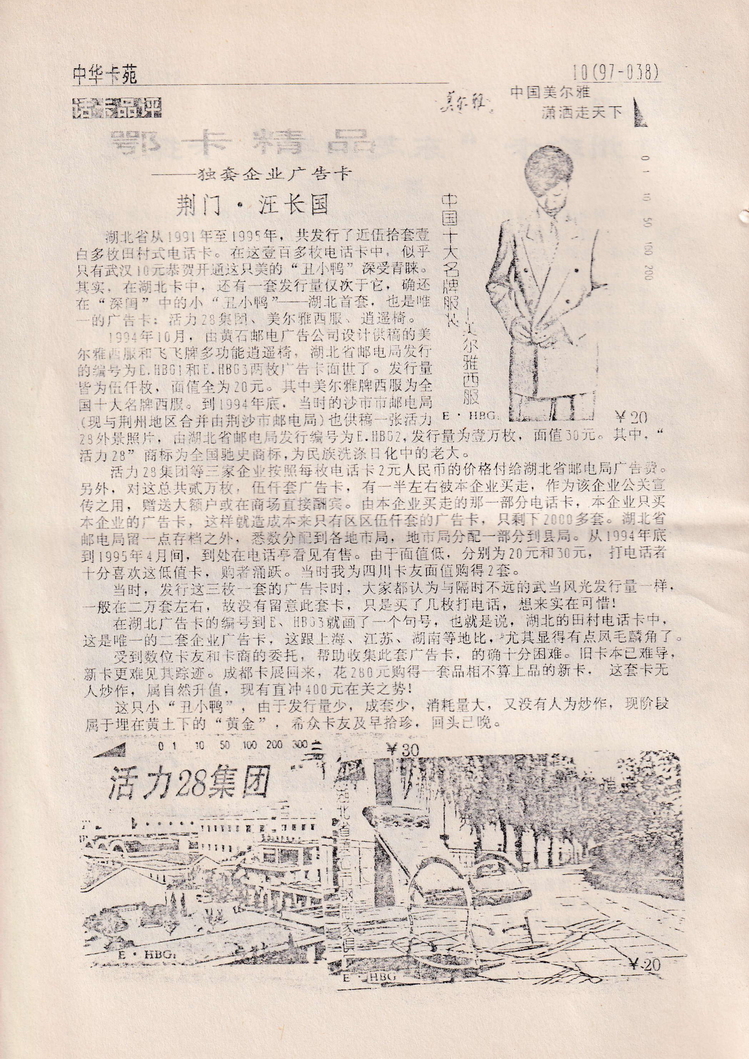 中华卡苑
10(97-038)
话卡品评
美尔雅
中国美尔雅
潇洒走天下
——独套企业广告卡
荆门·汪长国
0 1 10 50 100 200
中国十大名牌服装
—美尔雅西服
E·HBG₁
¥20
湖北省从1991年至1995年，共发行了近伍拾套壹
百多枚田村式电话卡。在这壹百多枚电话卡中，似乎
只有武汉10元恭贺开通这只美的“丑小鸭”深受青睐。
其实，在湖北卡中，还有一套发行量仅次于它，确还
在“深闺”中的小“丑小鸭”——湖北首套，也是唯
一的广告卡：活力28集团、美尔雅西服、逍遥椅。
1994年10月，由黄石邮电广告公司设计供稿的美
尔雅西服和飞飞牌多功能逍遥椅，湖北省邮电局发行
的编号为E.HBG1和E.HBG3两枚广告卡面世了。发行量
皆为伍仟枚，面值全为20元。其中美尔雅牌西服为全
国十大名牌西服。到1994年底，当时的沙市市邮电局
(现与荆州地区合并由荆沙市邮电局)也供稿一张活力
28外景照片，由湖北省邮电局发行编号为E.HBG2,发行量为壹万枚，面值30元。其中，“
活力28”商标为全国驰史商标,为民族洗涤日化中的老大。
活力28集团等三家企业按照每枚电话卡2元人民币的价格付给湖北省邮电局广告费。
另外，对这总共贰万枚，伍仟套广告卡，有一半左右被本企业买走，作为该企业公关宣
传之用，赠送大额户或在商场直接酬宾。由本企业买走的那一部分电话卡，本企业只买
本企业的广告卡，这样就造成本来只有区区伍仟套的广告卡，只剩下2000多套。湖北省
邮电局留一点存档之外，悉数分配到各地市局，地市局分配一部分到县局。从1994年底
到1995年4月间，到处在电话亭看见有售。由于面值低，分别为20元和30元，打电话者
十分喜欢这低值卡，购者涌跃。当时我为四川卡友面值购得2套。
当时，发行这三枚一套的广告卡时，大家都认为与隔时不远的武当风光发行量一样，
一般在二万套左右，故没有留意此套卡，只是买了几枚打电话，想来实在可惜！
在湖北广告卡的编号到E、HBG3就画了一个句号，也就是说，湖北的田村电话卡中，
这是唯一的二套企业广告卡，这跟上海、江苏、湖南等地比，尤其显得有点凤毛麟角了。
受到数位卡友和卡商的委托，帮助收集此套广告卡，的确十分困难。旧卡本已难导，
新卡更难见其踪迹。成都卡展回来，花280元购得一套品相不算上品的新卡，这套卡无
人炒作，属自然升值，现有直冲400元在关之势！
这只小“丑小鸭”，由于发行量少，成套少，消耗量大，又没有人为炒作，现阶段
属于埋在黄土下的“黄金”，希众卡友及早拾珍，回头已晚。
0 1 10 50 100 200 300
¥30
活力28集团
E·HBG₁
E·HBG
¥20